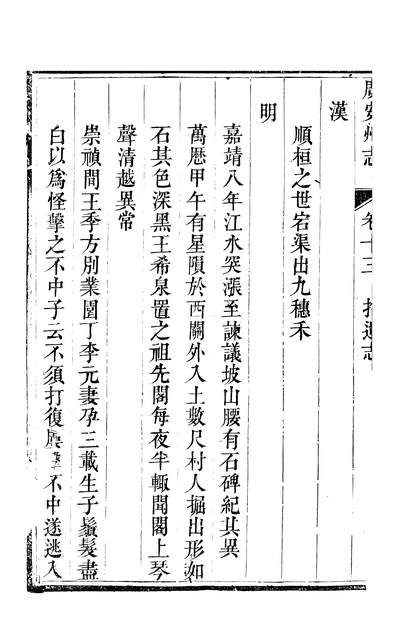 廣安州志 卷十三 拾遺志
漢
順桓之世宕渠出九穗禾
明
嘉靖八年江水突漲至諫議坡山腰有石碑紀其異
萬厯甲午有星隕於西關外入土數尺村人掘出形如
石其色深黑王希泉置之祖先閣每夜半輙聞閣上琴
聲清越異常
崇禎間王季方別業園丁李元妻孕三載生子鬚髮盡
白以爲怪擊之不中子云不須打復屢擊不中遂逃入